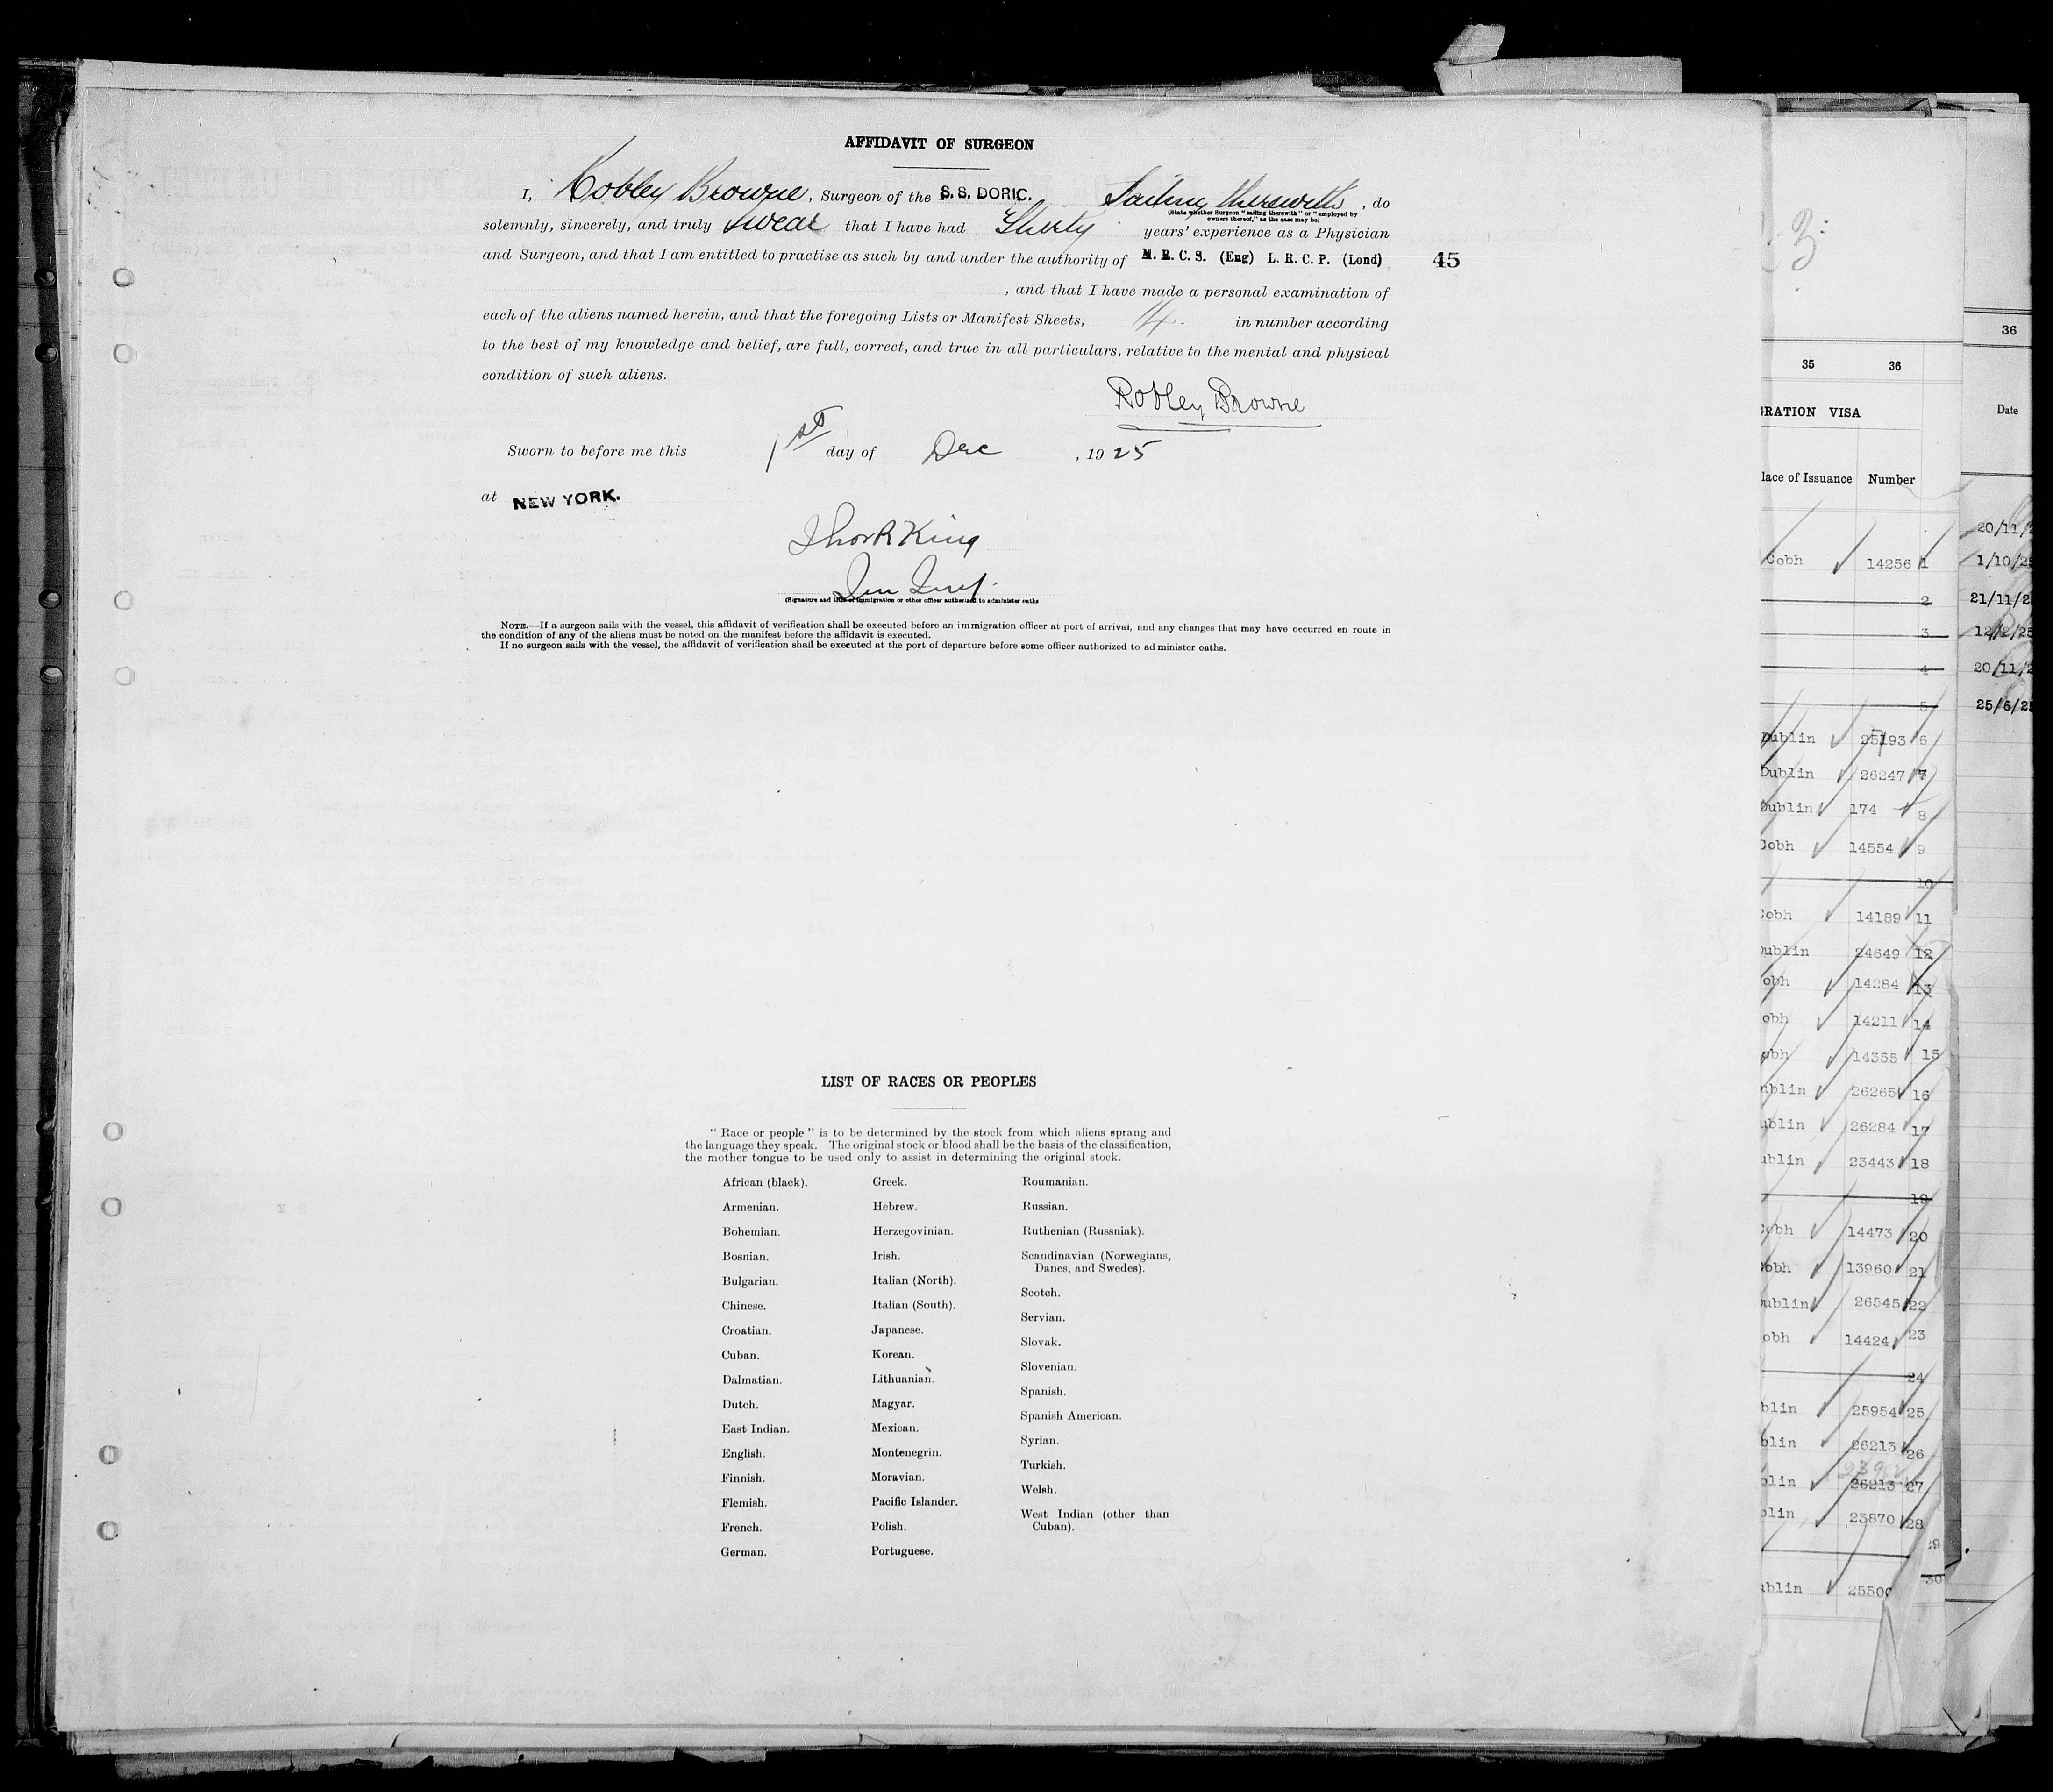 AFFIDAVIT OF SURGEON
I, Robley Browne, Surgeon of the S.S. DORIC. Sailing therewith, do
(State whether Surgeon "sailing therewith" or "employed by
owners thereof," as the case may be)
solemnly, sincerely, and truly swear that I have had Thirty years' experience as a Physician
and Surgeon, and that I am entitled to practise as such by and under the authority of M. R. C. S. (Eng) L. R. C. P. (Lond) 45
, and that I have made a personal examination of
each of the aliens named herein, and that the foregoing Lists or Manifest Sheets, 14. in number according
to the best of my knowledge and belief, are full, correct, and true in all particulars, relative to the mental and physical
condition of such aliens.
Robley Browne
Sworn to before me this 1st day of Dec , 1925
at NEW YORK.
King
(Signature and title of immigration or other officer authorized to administer oaths
NOTE.—If a surgeon sails with the vessel, this affidavit of verification shall be executed before an immigration officer at port of arrival, and any changes that may have occurred en route in
the condition of any of the aliens must be noted on the manifest before the affidavit is executed.
If no surgeon sails with the vessel, the affidavit of verification shall be executed at the port of departure before some officer authorized to administer oaths.
LIST OF RACES OR PEOPLES
" Race or people " is to be determined by the stock from which aliens sprang and
the language they speak. The original stock or blood shall be the basis of the classification,
the mother tongue to be used only to assist in determining the original stock.
African (black).
Armenian.
Bohemian.
Bosnian.
Bulgarian.
Chinese.
Croatian.
Cuban.
Dalmatian.
Dutch.
East Indian.
English.
Finnish.
Flemish.
French.
German.
Greek.
Hebrew.
Herzegovinian.
Irish.
Italian (North).
Italian (South).
Japanese.
Korean.
Lithuanian.
Magyar.
Mexican.
Montenegrin.
Moravian.
Pacific Islander.
Polish.
Portuguese.
Roumanian.
Russian.
Ruthenian (Russniak).
Scandinavian (Norwegians,
Danes, and Swedes).
Scotch.
Servian.
Slovak.
Slovenian.
Spanish.
Spanish American.
Syrian.
Turkish.
Welsh.
West Indian (other than
Cuban).
3
35 36
GRATION VISA
lace of Issuance Number
Cobh 14256 1
2
3
4
5
Dublin 25193 6
Dublin 26247 7
Dublin 174 8
Cobh 14554 9
10
Cobh 14189 11
Dublin 24649 12
obh 14284 13
obh 14211 14
obh 14355 15
ublin 26265 16
ublin 26284 17
ublin 23443 18
19
Cobh 14473 20
obh 13960 21
ublin 26545 22
obh 14424 23
24
blin 25954 25
blin 26213 26
blin 26213 27
blin 23870 28
29
30
ublin 2550
36
Date
20/11/2
1/10/25
21/11/2
12/2/25
20/11/2
25/6/25